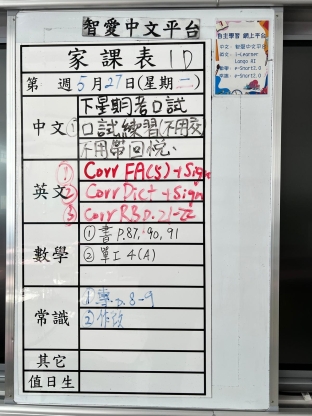 智愛中文平台
家課表 1D
第 週 5月27日(星期二)
中文
下星期考口試
① 口試練習(不用交
不用帶回悅、
英文
① Corr FA(5)+Sign
② Corr Dict+Sign
③ Corr RB p.21-22
數學
① 書 P.87, 90, 91
② 單工 4(A)
常識
① p.8-9
② 作
其它
值日生
自主學習 網上平台
中文: 智愛中文平台
英文: i-Learner